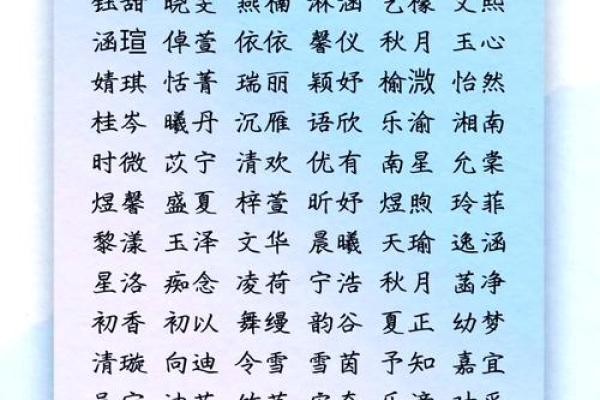 钰甜 晓雯 燕楠 淋涵 艺檬 文熙
涵瑄 倬萱 依依 馨仪 秋月 玉心
婧琪 恬菁 瑞丽 颖妤 榆溦 怡然
桂岑 曦丹 沉雁 语欣 乐渝 湘南
时微 苡宁 清欢 优有 南星 允棠
煜馨 盛夏 梓萱 昕妤 煜煦 玲菲
黎漾 玉泽 文华 晨曦 天瑜 逸涵
星洛 痴念 凌荷 宁浩 秋月 菡净
初香 初以 舞缦 韵谷 夏正 幼梦
清璇 向迪 令雪 雪茵 予知 嘉宜